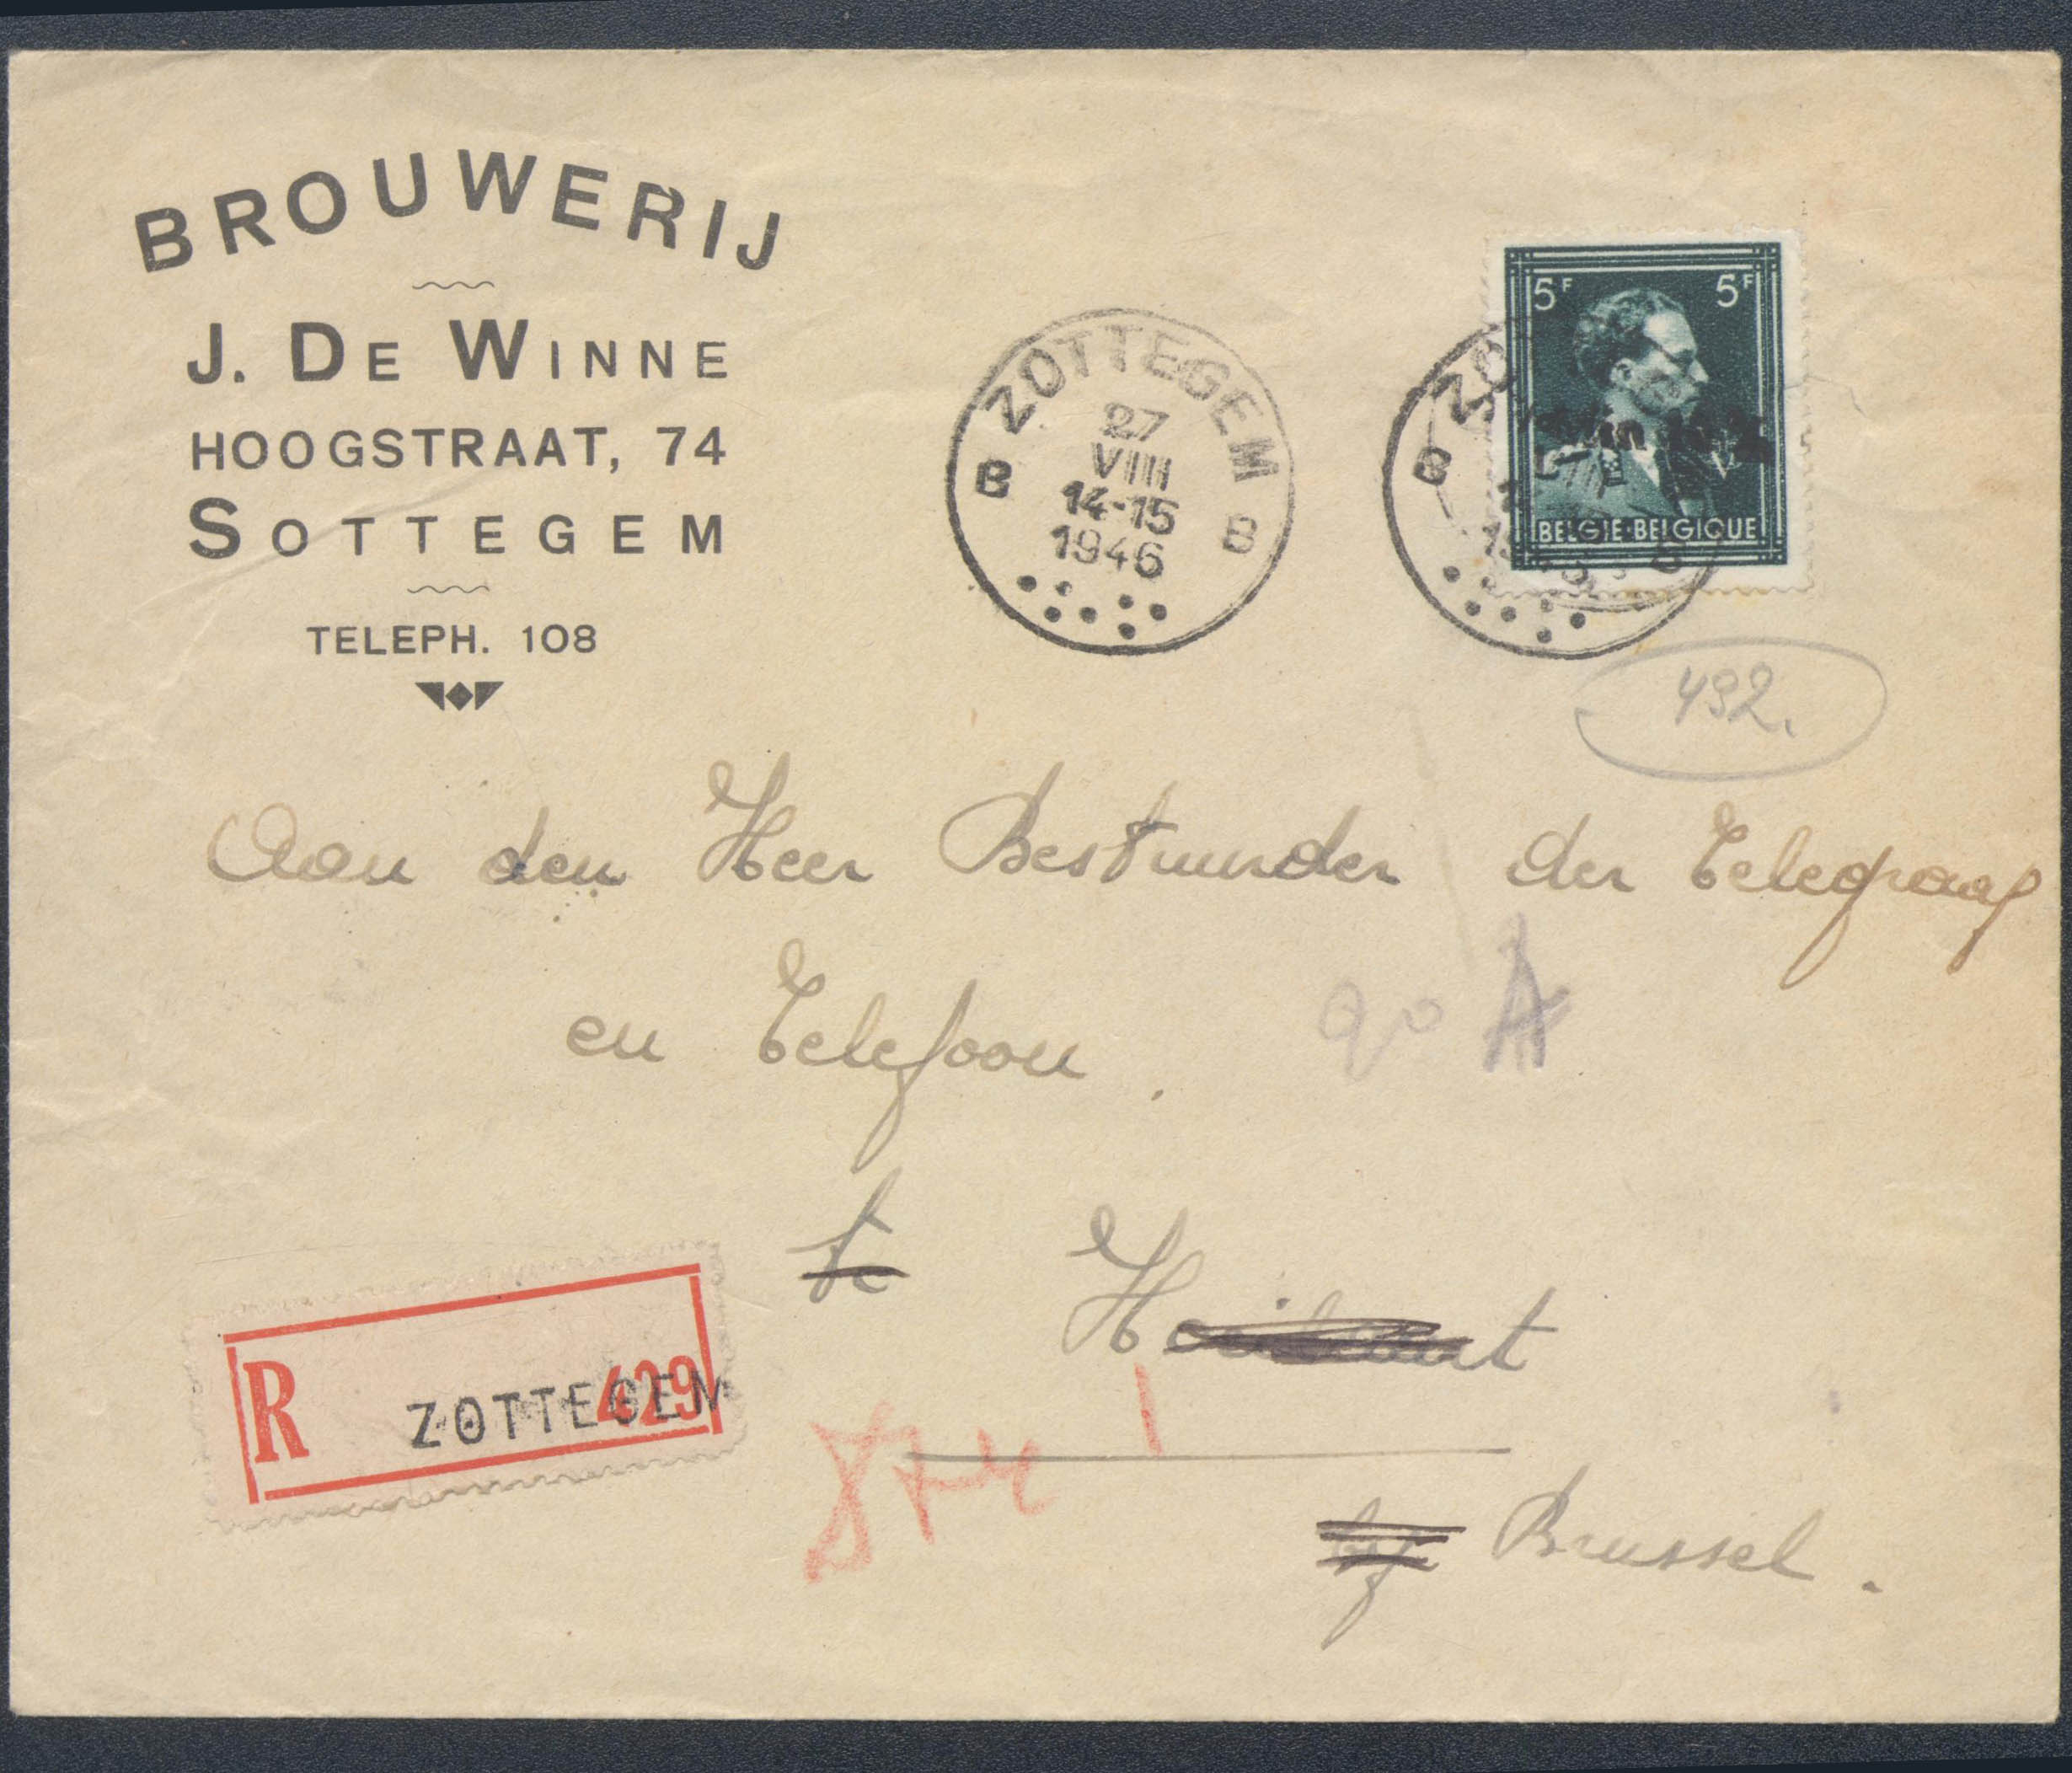 BROUWERIJ
J. DE WINNE
HOOGSTRAAT, 74
SOTTEGEM
TELEPH. 108
ZOTTEGEM
27
VIII
14-15
1946
B B
ZO
B
5F 5F
BELGIE·BELGIQUE
492.
Aan den Heer Bestuurder der Telegraaf
en Telefoon.
te
R 429
ZOTTEGEM
by Brussel.